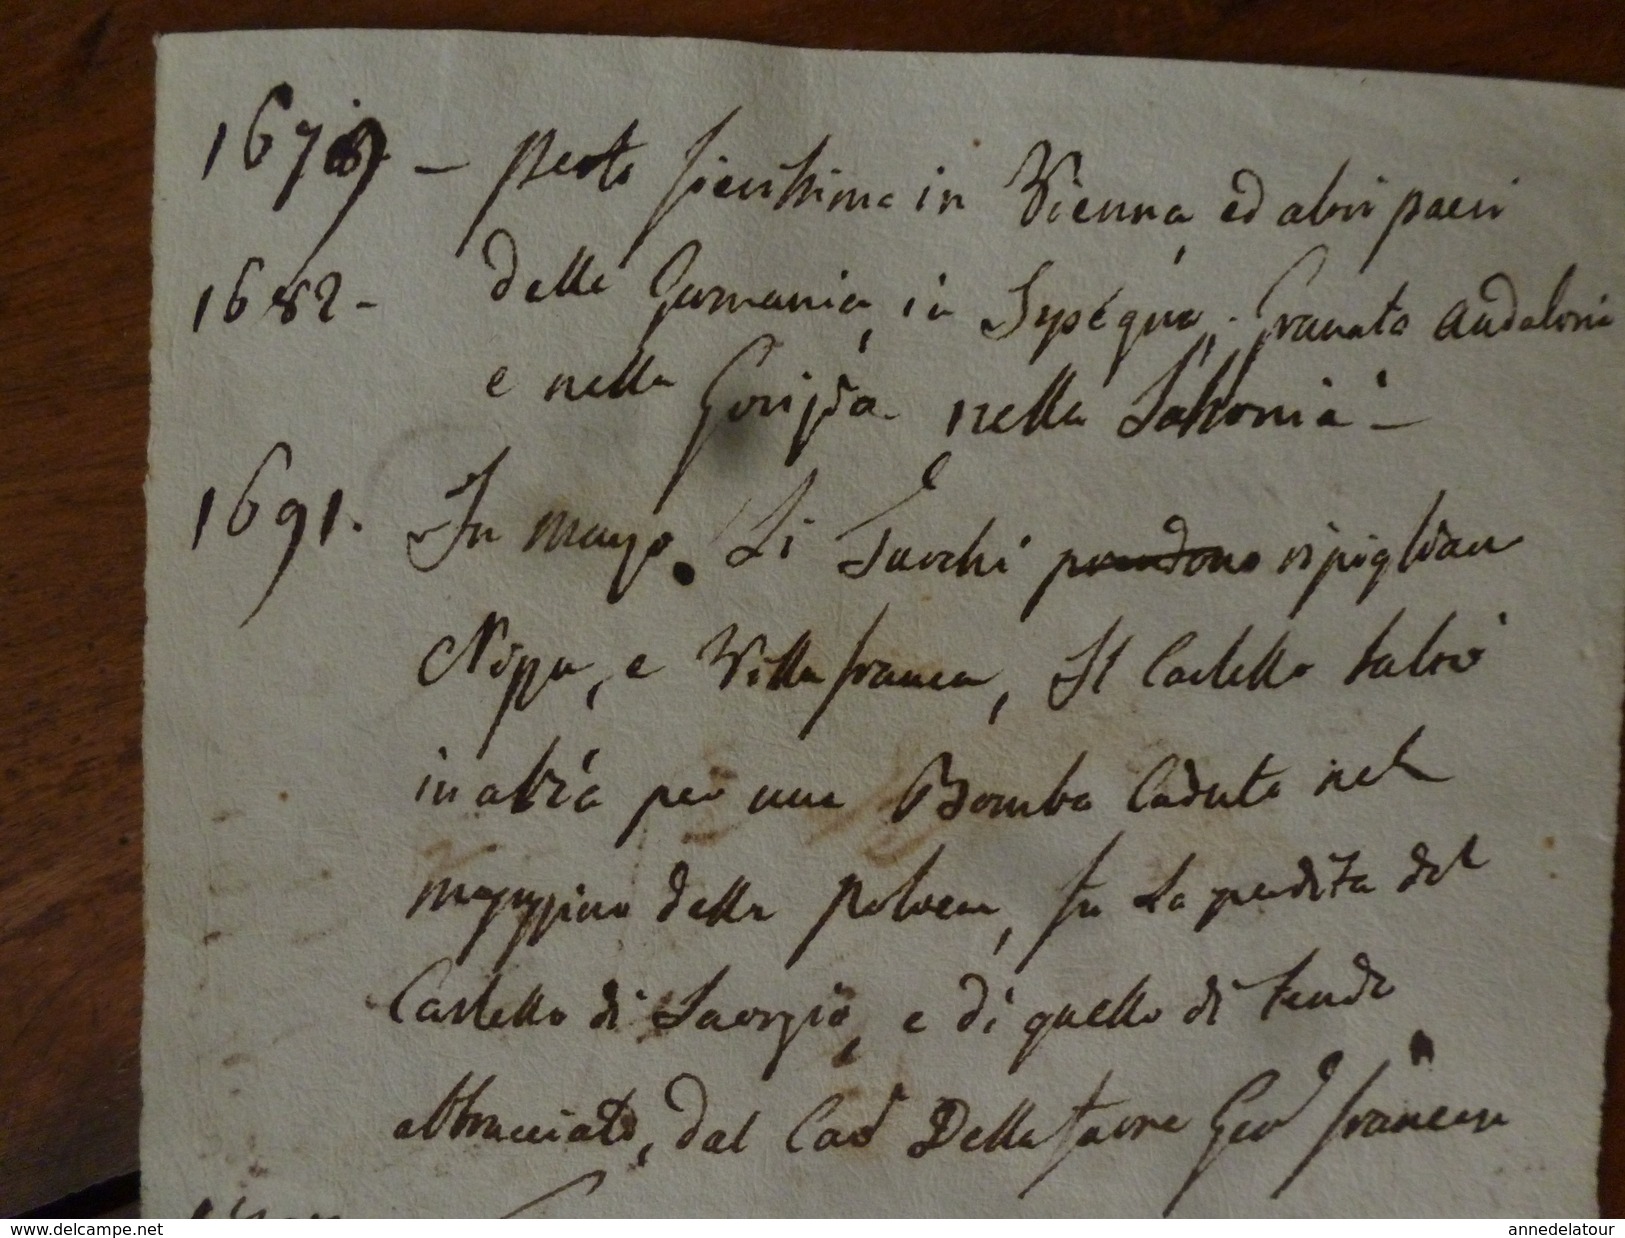 1679 - Peste fierissima in Vienna ed altri paesi
1682 - della Germania, in Granata Andalosia
e nella nella Sassonia -
1691. In marzo. Li Turchi prendono ripigliano
Nizza, e Villafranca, Il Castello saltò
in aria per una Bomba Caduta nel
magazzino della Polvere, fu la perdita del
Castello di Saorgio, e di quello di Tenda
abbracciato, dal Cav Della Torre Gen francese
www.delcampe.net
annedelatour